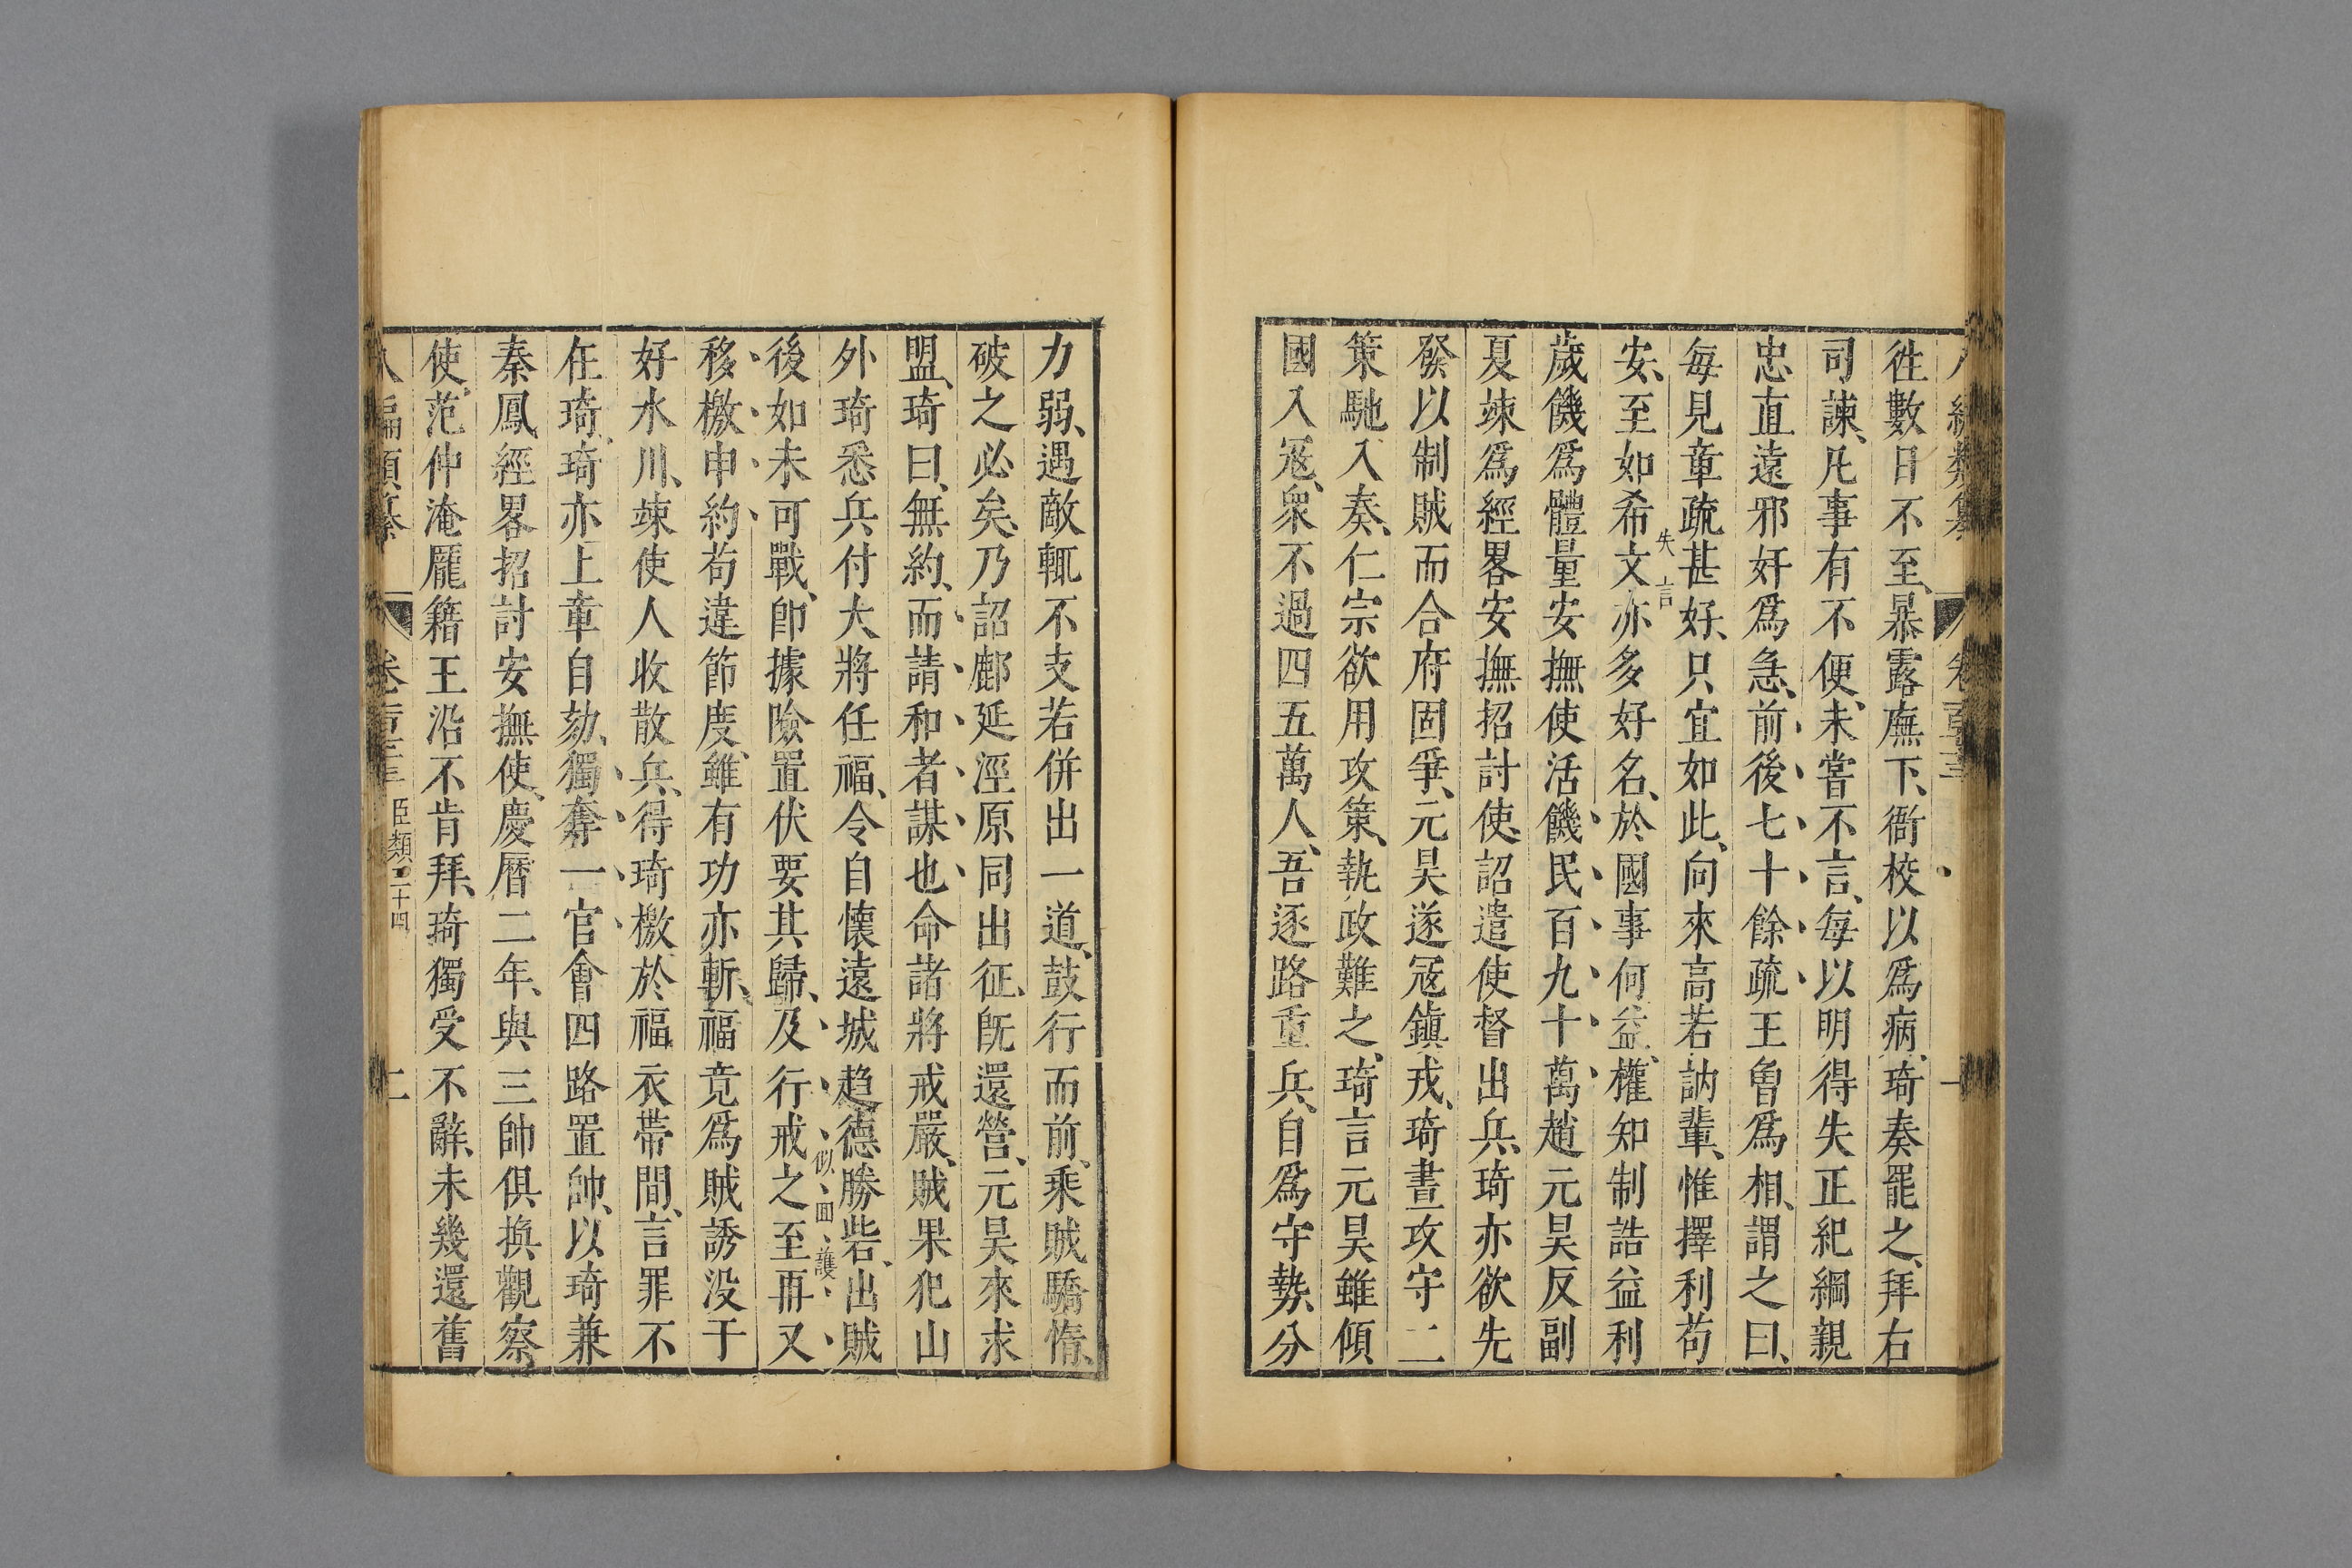 徃數日不至、暴露廡下、衙校以爲病、琦奏罷之、拜右
司諫、凡事有不便、未嘗不言、每以明得失正紀綱親
忠直遠邪奸爲急、前後七十餘疏、王曾爲相、謂之曰、
每見章疏甚好、只宜如此、向來高若訥輩、惟擇利苟
失言
安、至如希文亦多好名、於國事何益、權知制誥益利
歲饑爲體量安撫使活饑民百九十萬趙元昊反副
夏竦爲經畧安撫招討使、詔遣使督出兵、琦亦欲先
發以制賊而合府固爭、元昊遂寇鎮戎、琦畫攻守二
策馳入奏、仁宗欲用攻策、執政難之、琦言元昊雖傾
國入寇、衆不過四五萬人、吾逐路重兵、自爲守勢、分
力弱、遇敵輒不支若併出一道、鼓行而前、乘賊驕惰、
破之必矣、乃詔鄜延涇原同出征、旣還營、元昊來求
盟、琦曰、無約、而請和者謀也命諸將戒嚴、賊果犯山
外琦悉兵付大將任福、令自懷遠城趋德勝砦、出賊
似回護
後如未可戰、卽據險置伏要其歸、及行戒之至再又
移檄申約苟違節度、雖有功亦斬、福竟爲賊誘没于
好水川、竦使人收散兵、得琦檄於福衣帶間、言罪不
在琦、琦亦上章自劾、獨奪一官會四路置帥、以琦兼
秦鳳經畧招討安撫使、慶曆二年、與三帥俱換觀察
使、范仲淹龐籍王沿不肯拜、琦獨受不辭、未幾還舊
八編類纂 卷百三 臣類二十四 二